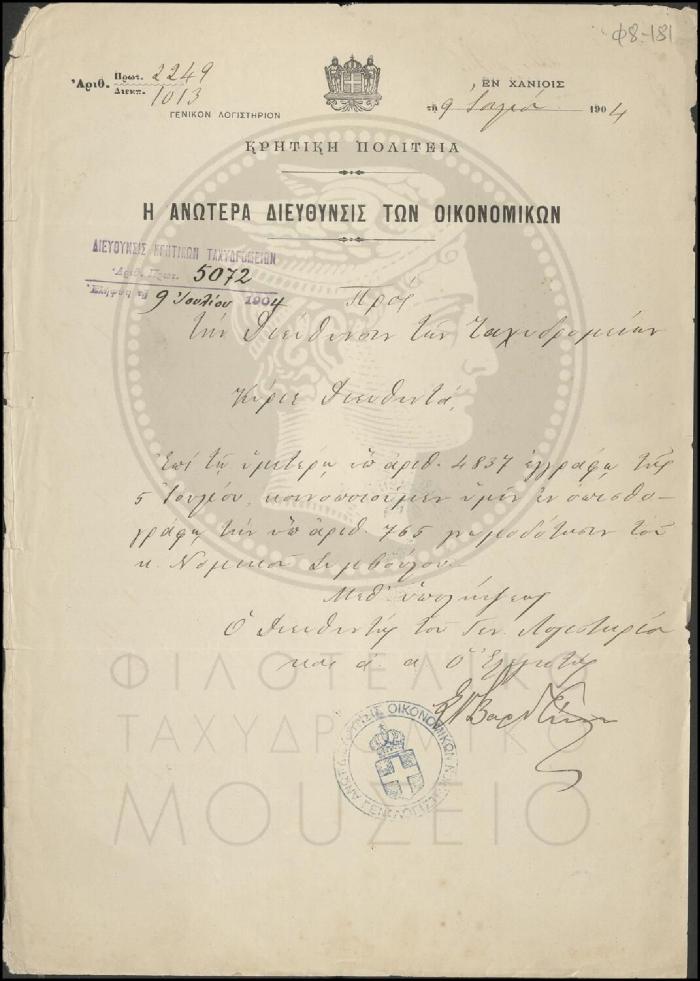 Φ8-181
Ἀριθ. Πρωτ. 2249
Διεκπ. 1013
ΓΕΝΙΚΟΝ ΛΟΓΙΣΤΗΡΙΟΝ
ἘΝ ΧΑΝΙΟΙΣ
τῇ 9 Ἰουλίου 1904
ΚΡΗΤΙΚΗ ΠΟΛΙΤΕΙΑ
Η ΑΝΩΤΕΡΑ ΔΙΕΥΘΥΝΣΙΣ ΤΩΝ ΟΙΚΟΝΟΜΙΚΩΝ
ΔΙΕΥΘΥΝΣΙΣ ΚΡΗΤΙΚΩΝ ΤΑΧΥΔΡΟΜΕΙΩΝ
Ἀριθ. Πρωτ. 5072
9 Ἰουλίου 1904
Πρὸς
τὴν Διεύθυνσιν τῶν Ταχυδρομείων
Κύριε Διευθυντά,
Ἐπὶ τῷ ὑμετέρῳ ὑπ' ἀριθ. 4837 ἐγγράφῳ τῆς
5 Ἰουλίου, κοινοποιοῦμεν ὑμῖν ἐν ὀπισθο-
γράφῳ τὴν ὑπ' ἀριθ. 765 γνωμοδότησιν τοῦ
κ. Νομικοῦ Συμβούλου.
Μεθ' ὑπολήψεως
Ὁ Διευθυντὴς τοῦ Γεν. Λογιστηρίου
κ.α.α. Ὁ Ἐλεγκτὴς
ΑΝΩΤ. ΔΙΕΥΘΥΝΣΙΣ ΟΙΚΟΝΟΜΙΚΩΝ
ΦΙΛΟΤΕΛΙΚΟ
ΤΑΧΥΔΡΟΜΙΚΟ
ΜΟΥΣΕΙΟ